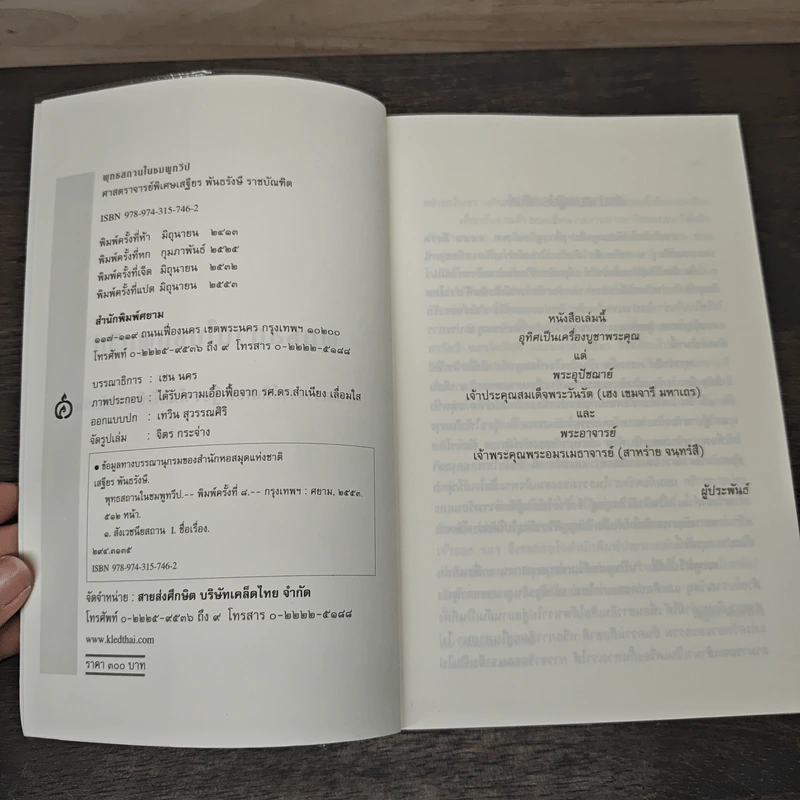 พุทธสถานในชมพูทวีป
ศาสตราจารย์พิเศษเสฐียร พันธรังษี ราชบัณฑิต
ISBN 978-974-315-746-2
พิมพ์ครั้งที่ห้า มิถุนายน ๒๔๑๓
พิมพ์ครั้งที่หก กุมภาพันธ์ ๒๕๒๕
พิมพ์ครั้งที่เจ็ด มิถุนายน ๒๕๓๒
พิมพ์ครั้งที่แปด มิถุนายน ๒๕๕๓
สำนักพิมพ์ศยาม
๑๑๗-๑๑๙ ถนนเฟื่องนคร เขตพระนคร กรุงเทพฯ ๑๐๒๐๐
โทรศัพท์ ๐-๒๒๒๕-๙๕๓๖ ถึง ๙ โทรสาร ๐-๒๒๒๒-๕๑๘๘
บรรณาธิการ : เชน นคร
ภาพประกอบ : ได้รับความเอื้อเฟื้อจาก รศ.ดร.สำเนียง เลื่อมใส
ออกแบบปก : เทวิน สุวรรณศิริ
จัดรูปเล่ม : จิตร กระจ่าง
• ข้อมูลทางบรรณานุกรมของสำนักหอสมุดแห่งชาติ
เสฐียร พันธรังษี.
พุทธสถานในชมพูทวีป.-- พิมพ์ครั้งที่ ๘.-- กรุงเทพฯ : ศยาม, ๒๕๕๓.
๕๑๒ หน้า.
๑. สังเวชนียสถาน I. ชื่อเรื่อง.
๒๙๔.๓๑๓๕
ISBN 978-974-315-746-2
จัดจำหน่าย : สายส่งศึกษิต บริษัทเคล็ดไทย จำกัด
โทรศัพท์ ๐-๒๒๒๕-๙๕๓๖ ถึง ๙ โทรสาร ๐-๒๒๒๒-๕๑๘๘
www.kledthai.com
ราคา ๓๐๐ บาท
หนังสือเล่มนี้
อุทิศเป็นเครื่องบูชาพระคุณ
แด่
พระอุปัชฌาย์
เจ้าประคุณสมเด็จพระวันรัต (เฮง เขมจารี มหาเถร)
และ
พระอาจารย์
เจ้าพระคุณพระอมรเมธาจารย์ (สาหร่าย จนฺทรํสี)
ผู้ประพันธ์